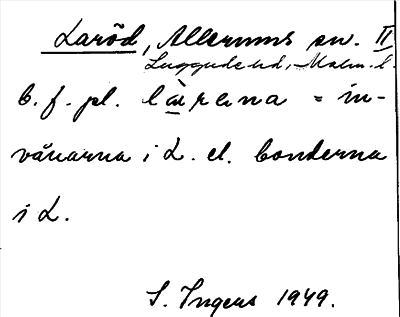 Laröd, Allerums sn. II
Luggude hd, Malm. l.
b. f. pl. làrana = in-
vånarna i L. el. bönderna
i L.
S. Ingers 1949.